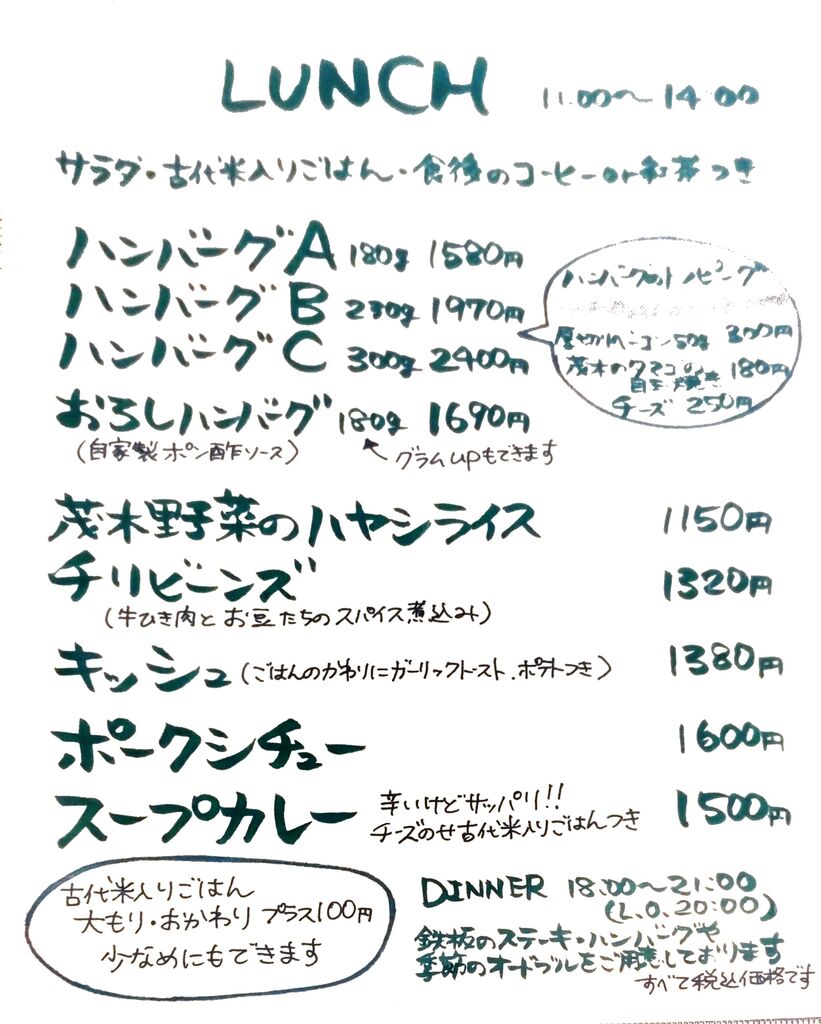 LUNCH 11:00〜14:00
サラダ・古代米入りごはん・食後のコーヒーor和茶つき
ハンバーグA 180g 1580円
ハンバーグB 230g 1970円
ハンバーグC 300g 2400円
おろしハンバーグ 180g 1690円
(自家製ポン酢ソース)
グラムupもできます
ハンバーグのトッピング
厚切りベーコン50g 300円
茂木のタマゴの
目玉焼き 180円
チーズ 250円
茂木野菜のハヤシライス 1150円
チリビーンズ 1320円
(牛ひき肉とお豆たちのスパイス煮込み)
キッシュ(ごはんのかわりにガーリックトースト、ポテトつき) 1380円
ポークシチュー 1600円
スープカレー 1500円
辛いけどサッパリ!!
チーズのせ古代米入りごはんつき
古代米入りごはん
大もり・おかわり プラス100円
少なめにもできます
DINNER 18:00〜21:00
(L.O.20:00)
鉄板のステーキ・ハンバーグや
季節のオードブルをご用意しております
すべて税込価格です